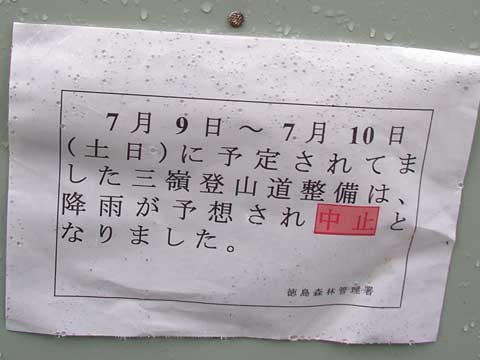 7月9日～7月10日
(土日)に予定されてま
した三嶺登山道整備は、
降雨が予想され中止と
なりました。
徳島森林管理署